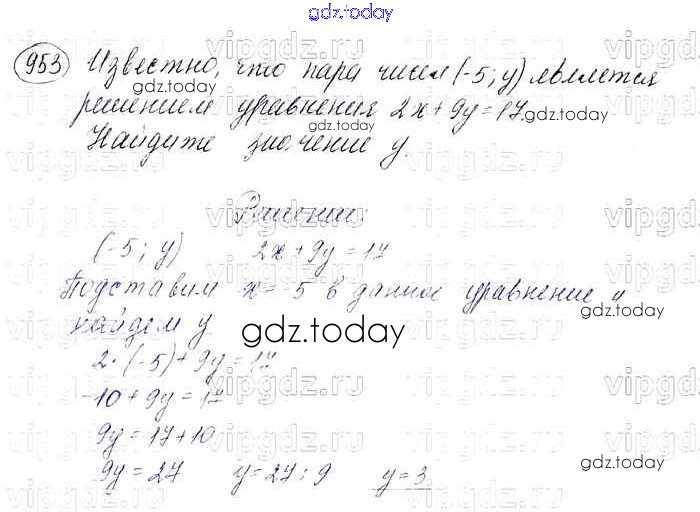 gdz.today
953 Известно, что пара чисел (-5; y) является
решением уравнения 2x + 9y = 17.
Найдите значение y.
Решение:
(-5; y) 2x + 9y = 17
Подставим x = -5 в данное уравнение и
найдем y.
2·(-5) + 9y = 17
-10 + 9y = 17
9y = 17 + 10
9y = 27 y = 27 : 9 y = 3
gdz.today
gdz.today
gdz.today
gdz.today
gdz.today
gdz.today
gdz.today
gdz.today
vipgdz.ru